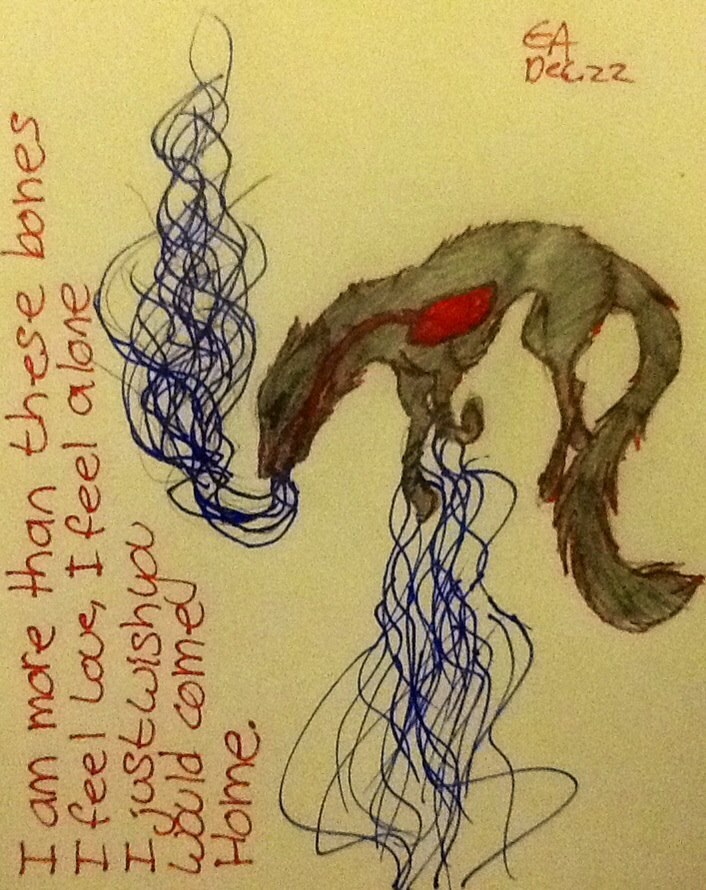 EA
Dec.22
I am more than these bones
I feel love, I feel alone
I just wish you
would come
Home.